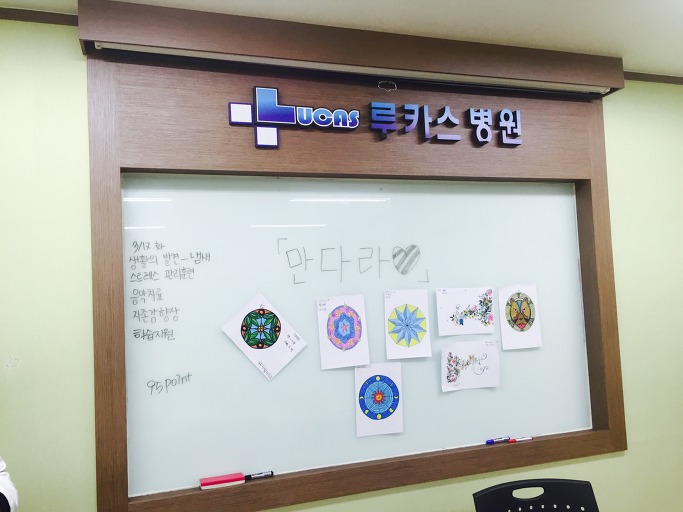 LUCAS 루카스 병원
「만다라♥」
3/17 화
생활의 발견 - 냄새
스트레스 관리훈련
음악치료
자존감향상
학습지원
95 point